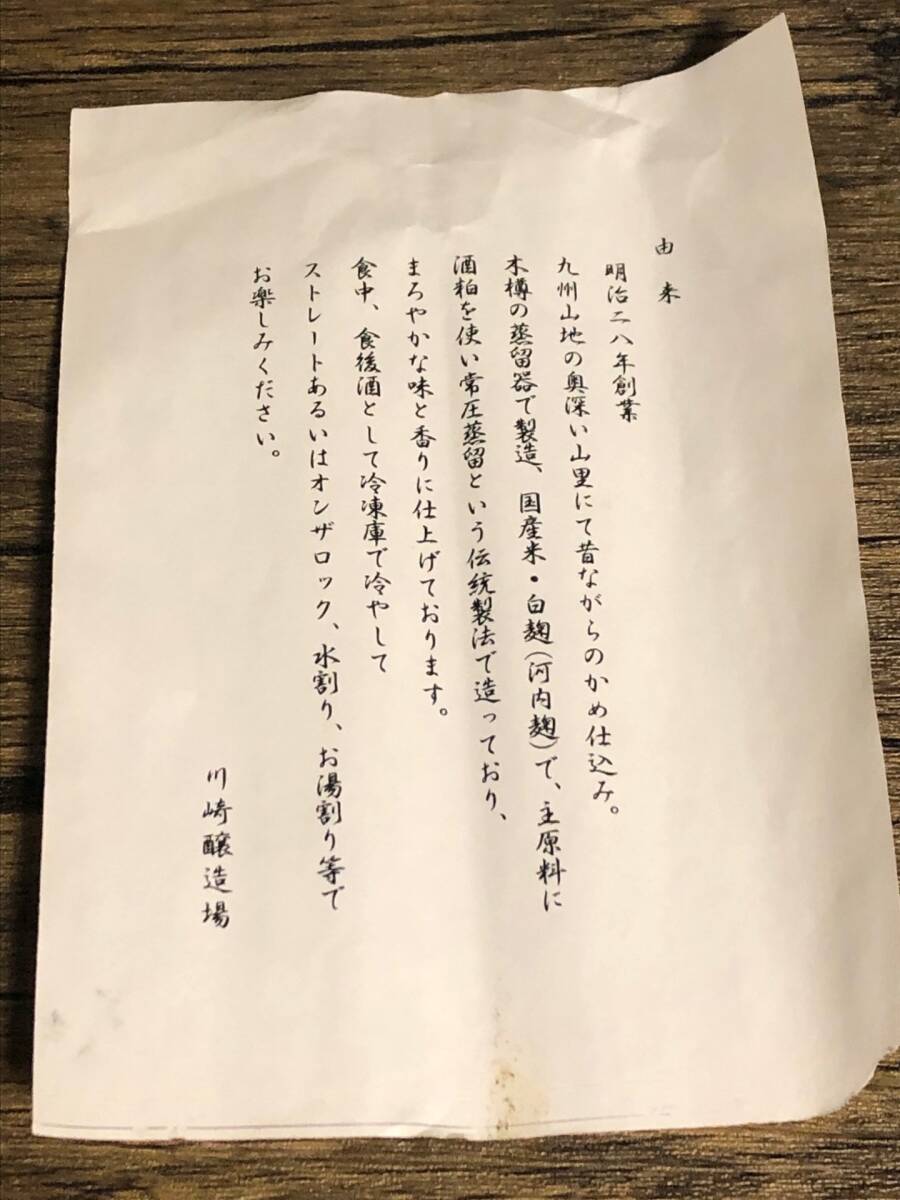 由来
明治二八年創業
九州山地の奥深い山里にて昔ながらのかめ仕込み。
木樽の蒸留器で製造、国産米・白麹（河内麹）で、主原料に
酒粕を使い常圧蒸留という伝統製法で造っており、
まろやかな味と香りに仕上げております。
食中、食後酒として冷凍庫で冷やして
ストレートあるいはオンザロック、水割り、お湯割り等で
お楽しみください。
川崎醸造場